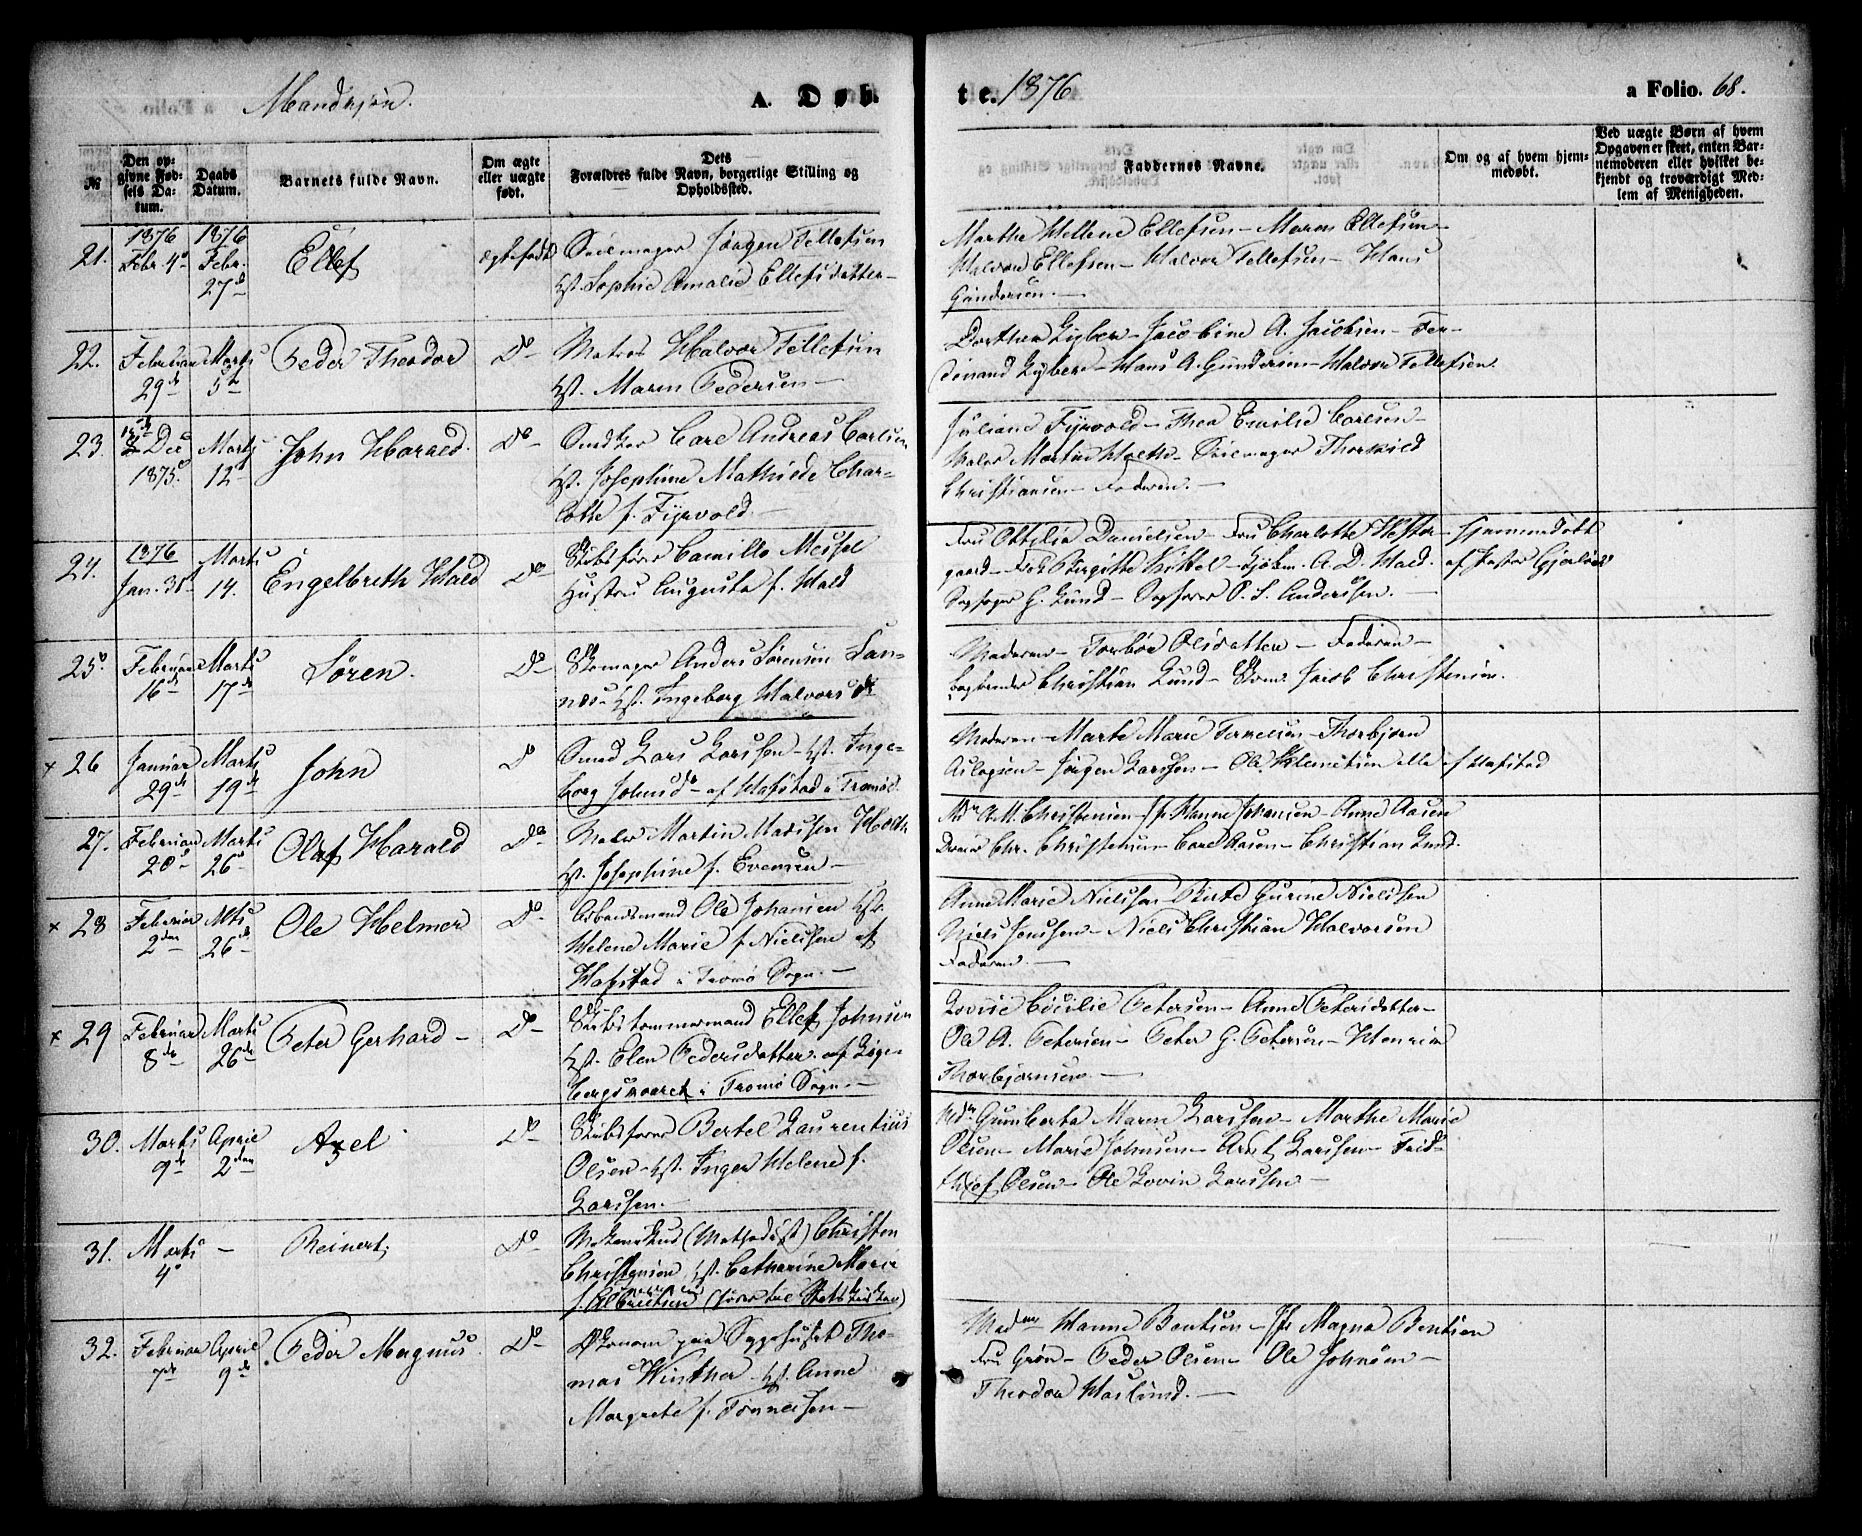 Mandkjøn.
A. Døb-
te. 1876
a Folio. 68.
№
Den op-
givne Fød-
sels Da-
tum.
Daabs
Datum.
Barnets fulde Navn.
Om ægte
eller uægte
født.
Dets
Forældres fulde Navn, borgerlige Stilling og
Opholdssted.
Faddernes Navne.
Om og af hvem hjem-
medøbt.
Ved uægte Børn af hvem
Opgaven er skeet, enten Bar-
nemoderen eller hvilket be-
kjendt og troværdigt Med-
lem af Menigheden.
21.
1876
Febr. 4de
1876
Febr.
27de
Ellef
ægtefødt
Seilmager Jørgen Tellefsen
Hst. Sophie Amalie Ellefsdatter
Marthe Hellene Ellefsen - Maren Ellefsen -
Halvor Ellefsen - Halvor Tellefsen - Hans
Gundersen.
22.
Februar
29de
Marts
5te
Peder Theodor
Do
Matros Halvor Tellefsen
Hst. Maren Pedersen
Dorthea Zyber - Jacobine A. Jacobsen - Fer-
dinand Zyber - Hans A. Gundersen - Halvor Tellefsen.
23.
Dec
1875.
Marts
12te
John Harald.
Do
Snedker Carl Andreas Carlsen
Hst. Josephine Mathilde Char-
lotte f. Fyrvold
Juliane Fyrvold - Thea Emilie Carlsen -
Maler Martin Holth - Seilmager Thorkild
Christiansen - Faderen.
24.
1876
Jan. 31te
Marts
14.
Engelbreth Hald
Do
Skibsfører Camillo Meusel
Hustru Augusta f. Hald
Fru Ottilia Danielsen - Fru Charlotte Hester-
gaard - Frk Birgitte Kittel - Kjøbm. A. D. Hald.
Sagfører G. Lund - Sagfører P. S. Anderssen.
Hjemmedøbt
af Pastor
25.
Februar
16de
Marts
17de
Søren.
Do
Skomager Anders Sørensen San-
næs - Hst. Ingeborg Halvorsdr
Moderen - Torbor Olsdatter - Faderen -
Bogbinder Christian Lund - Skom. Jacob Christensen.
x 26
Januar
29de
Marts
19de
John
Do
Smed Lars Larssen - Hst. Inge-
borg Johnsdr - af Hafstad i Tromø.
Moderen - Marte Marie Tønnesen - Thorbjørn
Aslagsen - Jørgen Larssen - Ole Klemetsen alle af Hafstad
27.
Februar
20de
Marts
26de
Olaf Harald
Do
Maler Martin Madssen Holth
Hst. Josephine f. Evensen
Md. A. M. Christensen - Jfr Hanne Johansen - Anne Aasen
Chr. Christensen - Carl Aasen - Christian Lund.
x 28
Februar
2den
Mts
26de
Ole Helmer
Do
Arbeidsmand Ole Johansen Hst.
Helene Marie f. Nielssen af
Hafstad i Tromø Sogn.
Anne Marie Nielssen - Birte Gurine Nielssen
Niels Jenssen - Niels Christian Halvorsen
Faderen.
x 29
Februar
8de
Marts
26de
Peter Gerhard
Do
Skibstømmermand Ellef Johnsen
Hst. Elen Pedersdatter af Bøge-
bergsmoeret i Tromø Sogn.
Lovise Cecilie Petersen - Anne Petersdatter -
Ole A. Petersen - Peter G. Petersen - Henrik
Thorbjørnsen.
30.
Marts
9de
April
2den
Axel
Do
Skibsfører Bertel Laurentius
Olsen - Hst. Inger Helene f.
Larssen.
Mdm Gumberta Maren Larssen - Marthe Marie
Olsen - Marie Johnsen - Larssen - Frid-
thjof Olsen - Ole Lovin Larssen
31.
Marts
4de
-
Reinert
Do
Mekanikus (Methodist) Christen
Christensen Hst. Catharine Marie
f. Albretsen (hører til Statskirken)
32.
Februar
7de
April
9de
Peder Magnus
Do
Økonom paa Sygehuset Tho-
mas Winther Hst. Anne
Margrete f. Tønnessen
Madme Hanne Bentsen - Jfr Magna Bentsen
Fru Grøn - Peder Olsen - Ole Johnsen -
Theodor Haslund.